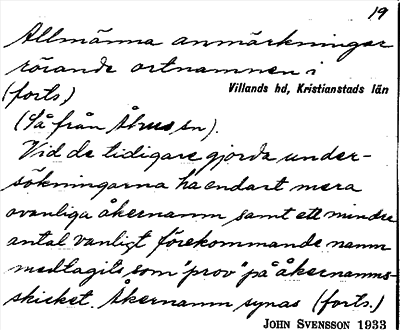 19
Allmänna anmärkningar
rörande ortnamnen i
Villands hd, Kristianstads län
(forts)
(Så från Åhus sn).
Vid de tidigare gjorda under-
sökningarna ha endast mera
ovanliga åkernamn samt ett mindre
antal vanligt förekommande namn
medtagits som "prov" på åkernamns-
skicket. Åkernamn synas (forts.)
JOHN SVENSSON 1933